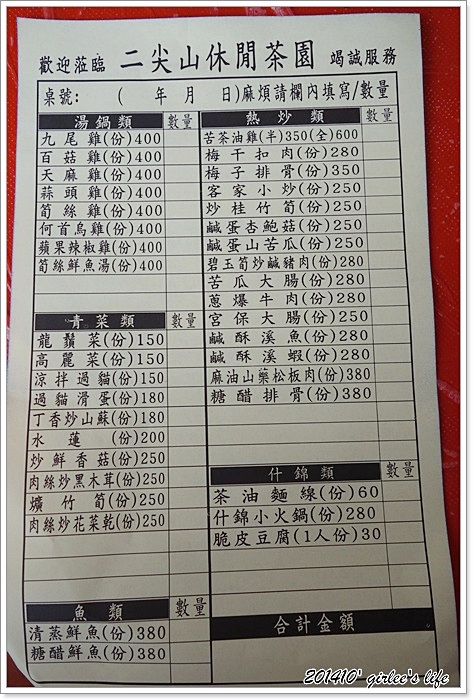 歡迎蒞臨 二尖山休閒茶園 竭誠服務
桌號: ( 年 月 日)麻煩請欄內填寫/數量
湯鍋類 數量
九尾雞(份)400
百菇雞(份)400
天麻雞(份)400
蒜頭雞(份)400
筍絲雞(份)400
何首烏雞(份)400
蘋果辣椒雞(份)400
筍絲鮮魚湯(份)400
青菜類 數量
龍鬚菜(份)150
高麗菜(份)150
涼拌過貓(份)150
過貓滑蛋(份)180
丁香炒山蘇(份)180
水蓮 (份)200
炒鮮香菇(份)250
肉絲炒黑木茸(份)250
壙竹筍(份)250
肉絲炒花菜乾(份)250
魚類 數量
清蒸鮮魚(份)380
糖醋鮮魚(份)380
熱炒類 數量
苦茶油雞(半)350(全)600
梅干扣肉(份)280
梅子排骨(份)350
客家小炒(份)250
炒桂竹筍(份)250
鹹蛋杏鮑菇(份)250
鹹蛋山苦瓜(份)250
碧玉筍炒鹹豬肉(份)280
苦瓜大腸(份)280
蔥爆牛肉(份)280
宮保大腸(份)250
鹹酥溪魚(份)280
鹹酥溪蝦(份)280
麻油山藥松板肉(份)380
糖醋排骨(份)380
什錦類 數量
茶油麵線(份)60
什錦小火鍋(份)280
脆皮豆腐(1人份)30
合計金額
201410' girlee's life